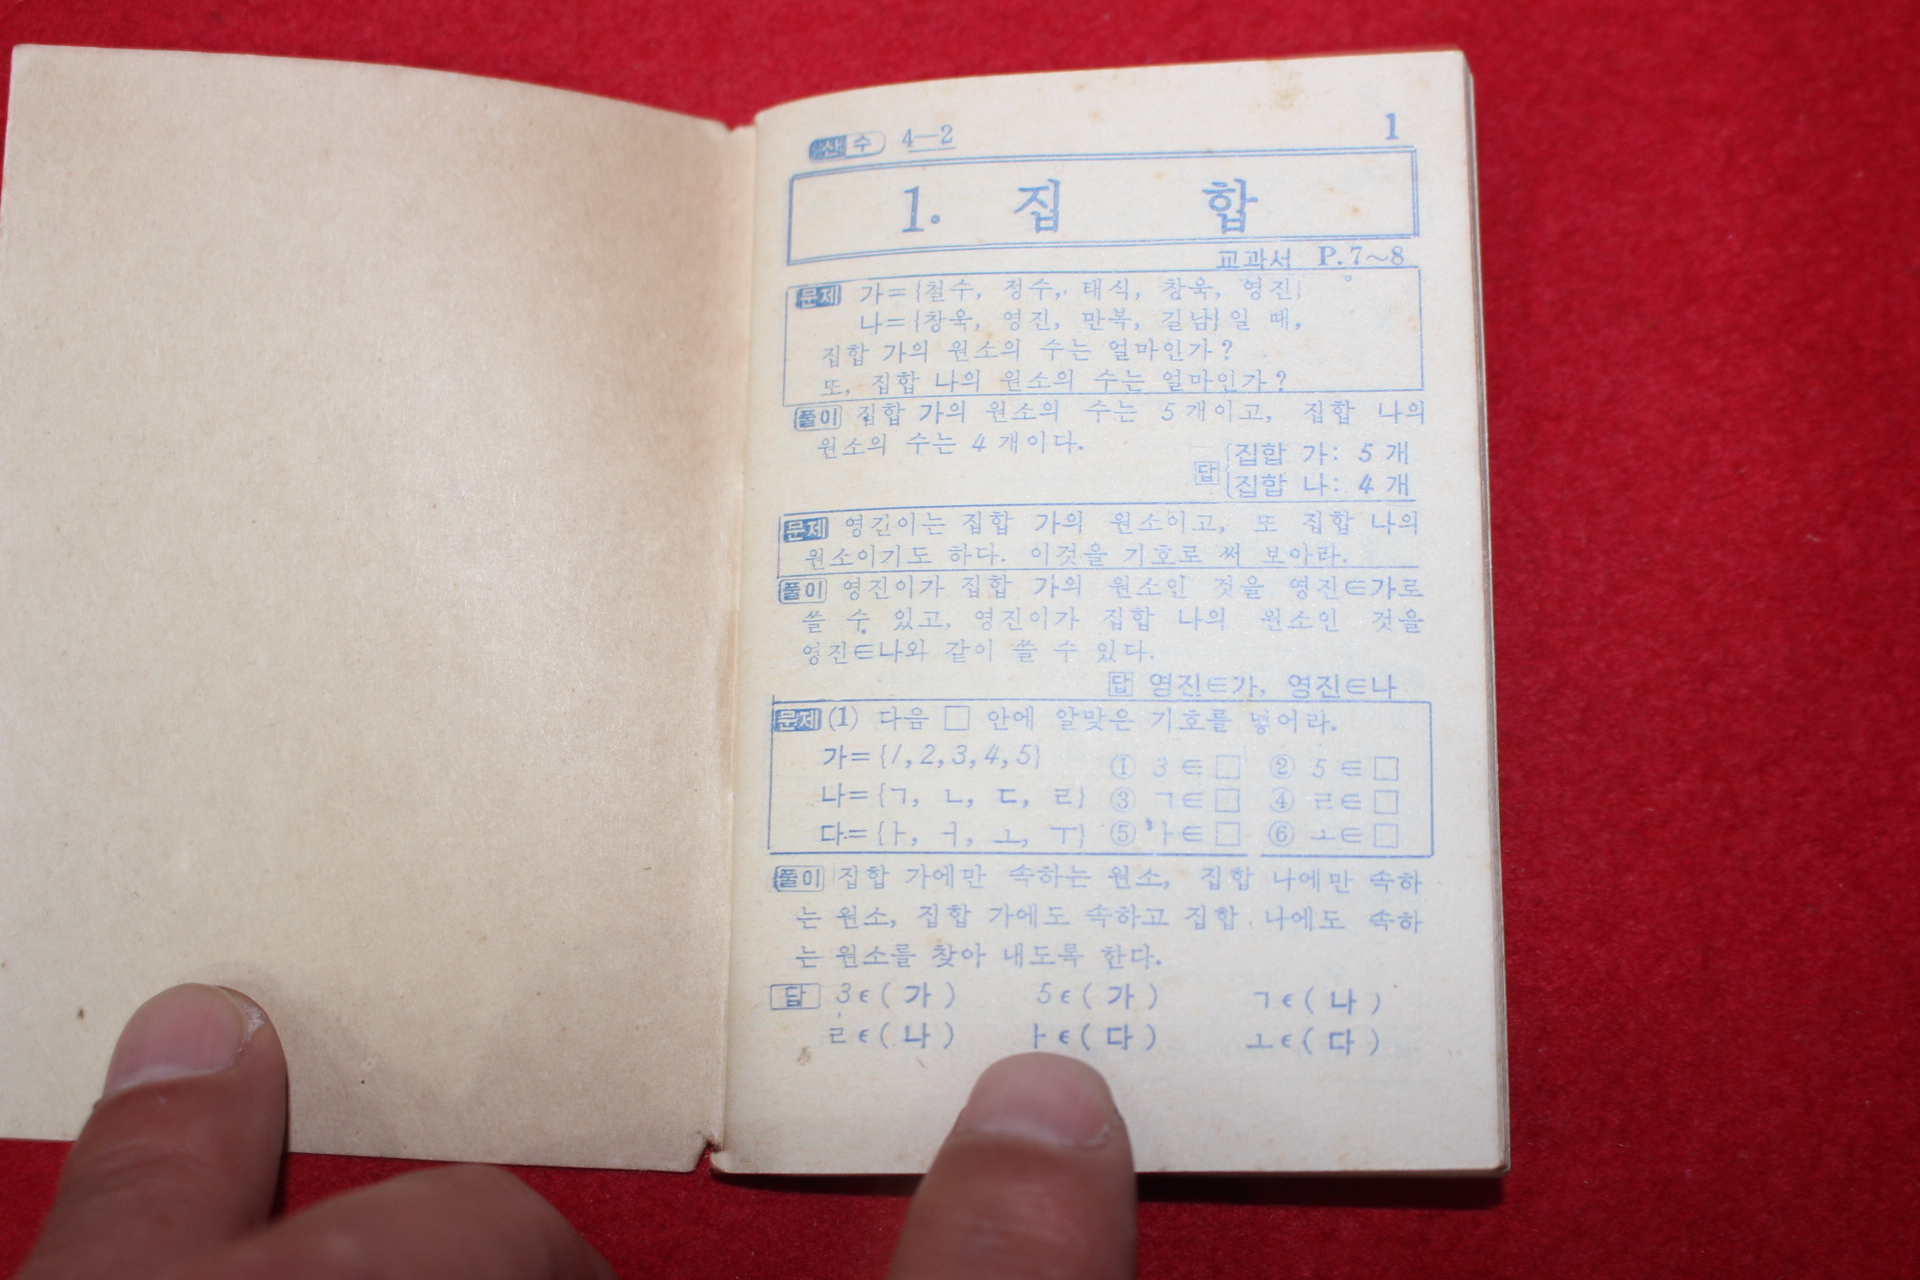 산수 4—2 1
1. 집 합
교과서 P.7~8
문제 가={철수, 정수, 태식, 창욱, 영진}
나={창욱, 영진, 만복, 길남}일 때,
집합 가의 원소의 수는 얼마인가?
또, 집합 나의 원소의 수는 얼마인가?
풀이 집합 가의 원소의 수는 5개이고, 집합 나의
원소의 수는 4개이다.
답 {집합 가: 5개
{집합 나: 4개
문제 영진이는 집합 가의 원소이고, 또 집합 나의
원소이기도 하다. 이것을 기호로 써 보아라.
풀이 영진이가 집합 가의 원소인 것을 영진∈가로
쓸 수 있고, 영진이가 집합 나의 원소인 것을
영진∈나와 같이 쓸 수 있다.
답 영진∈가, 영진∈나
문제 (1) 다음 □ 안에 알맞은 기호를 넣어라.
가={1,2,3,4,5} ① 3∈□ ② 5∈□
나={ㄱ, ㄴ, ㄷ, ㄹ} ③ ㄱ∈□ ④ ㄹ∈□
다={ㅏ, ㅓ, ㅗ, ㅜ} ⑤ ㅏ∈□ ⑥ ㅗ∈□
풀이 집합 가에만 속하는 원소, 집합 나에만 속하
는 원소, 집합 가에도 속하고 집합 나에도 속하
는 원소를 찾아 내도록 한다.
답 3∈(가) 5∈(가) ㄱ∈(나)
ㄹ∈(나) ㅏ∈(다) ㅗ∈(다)